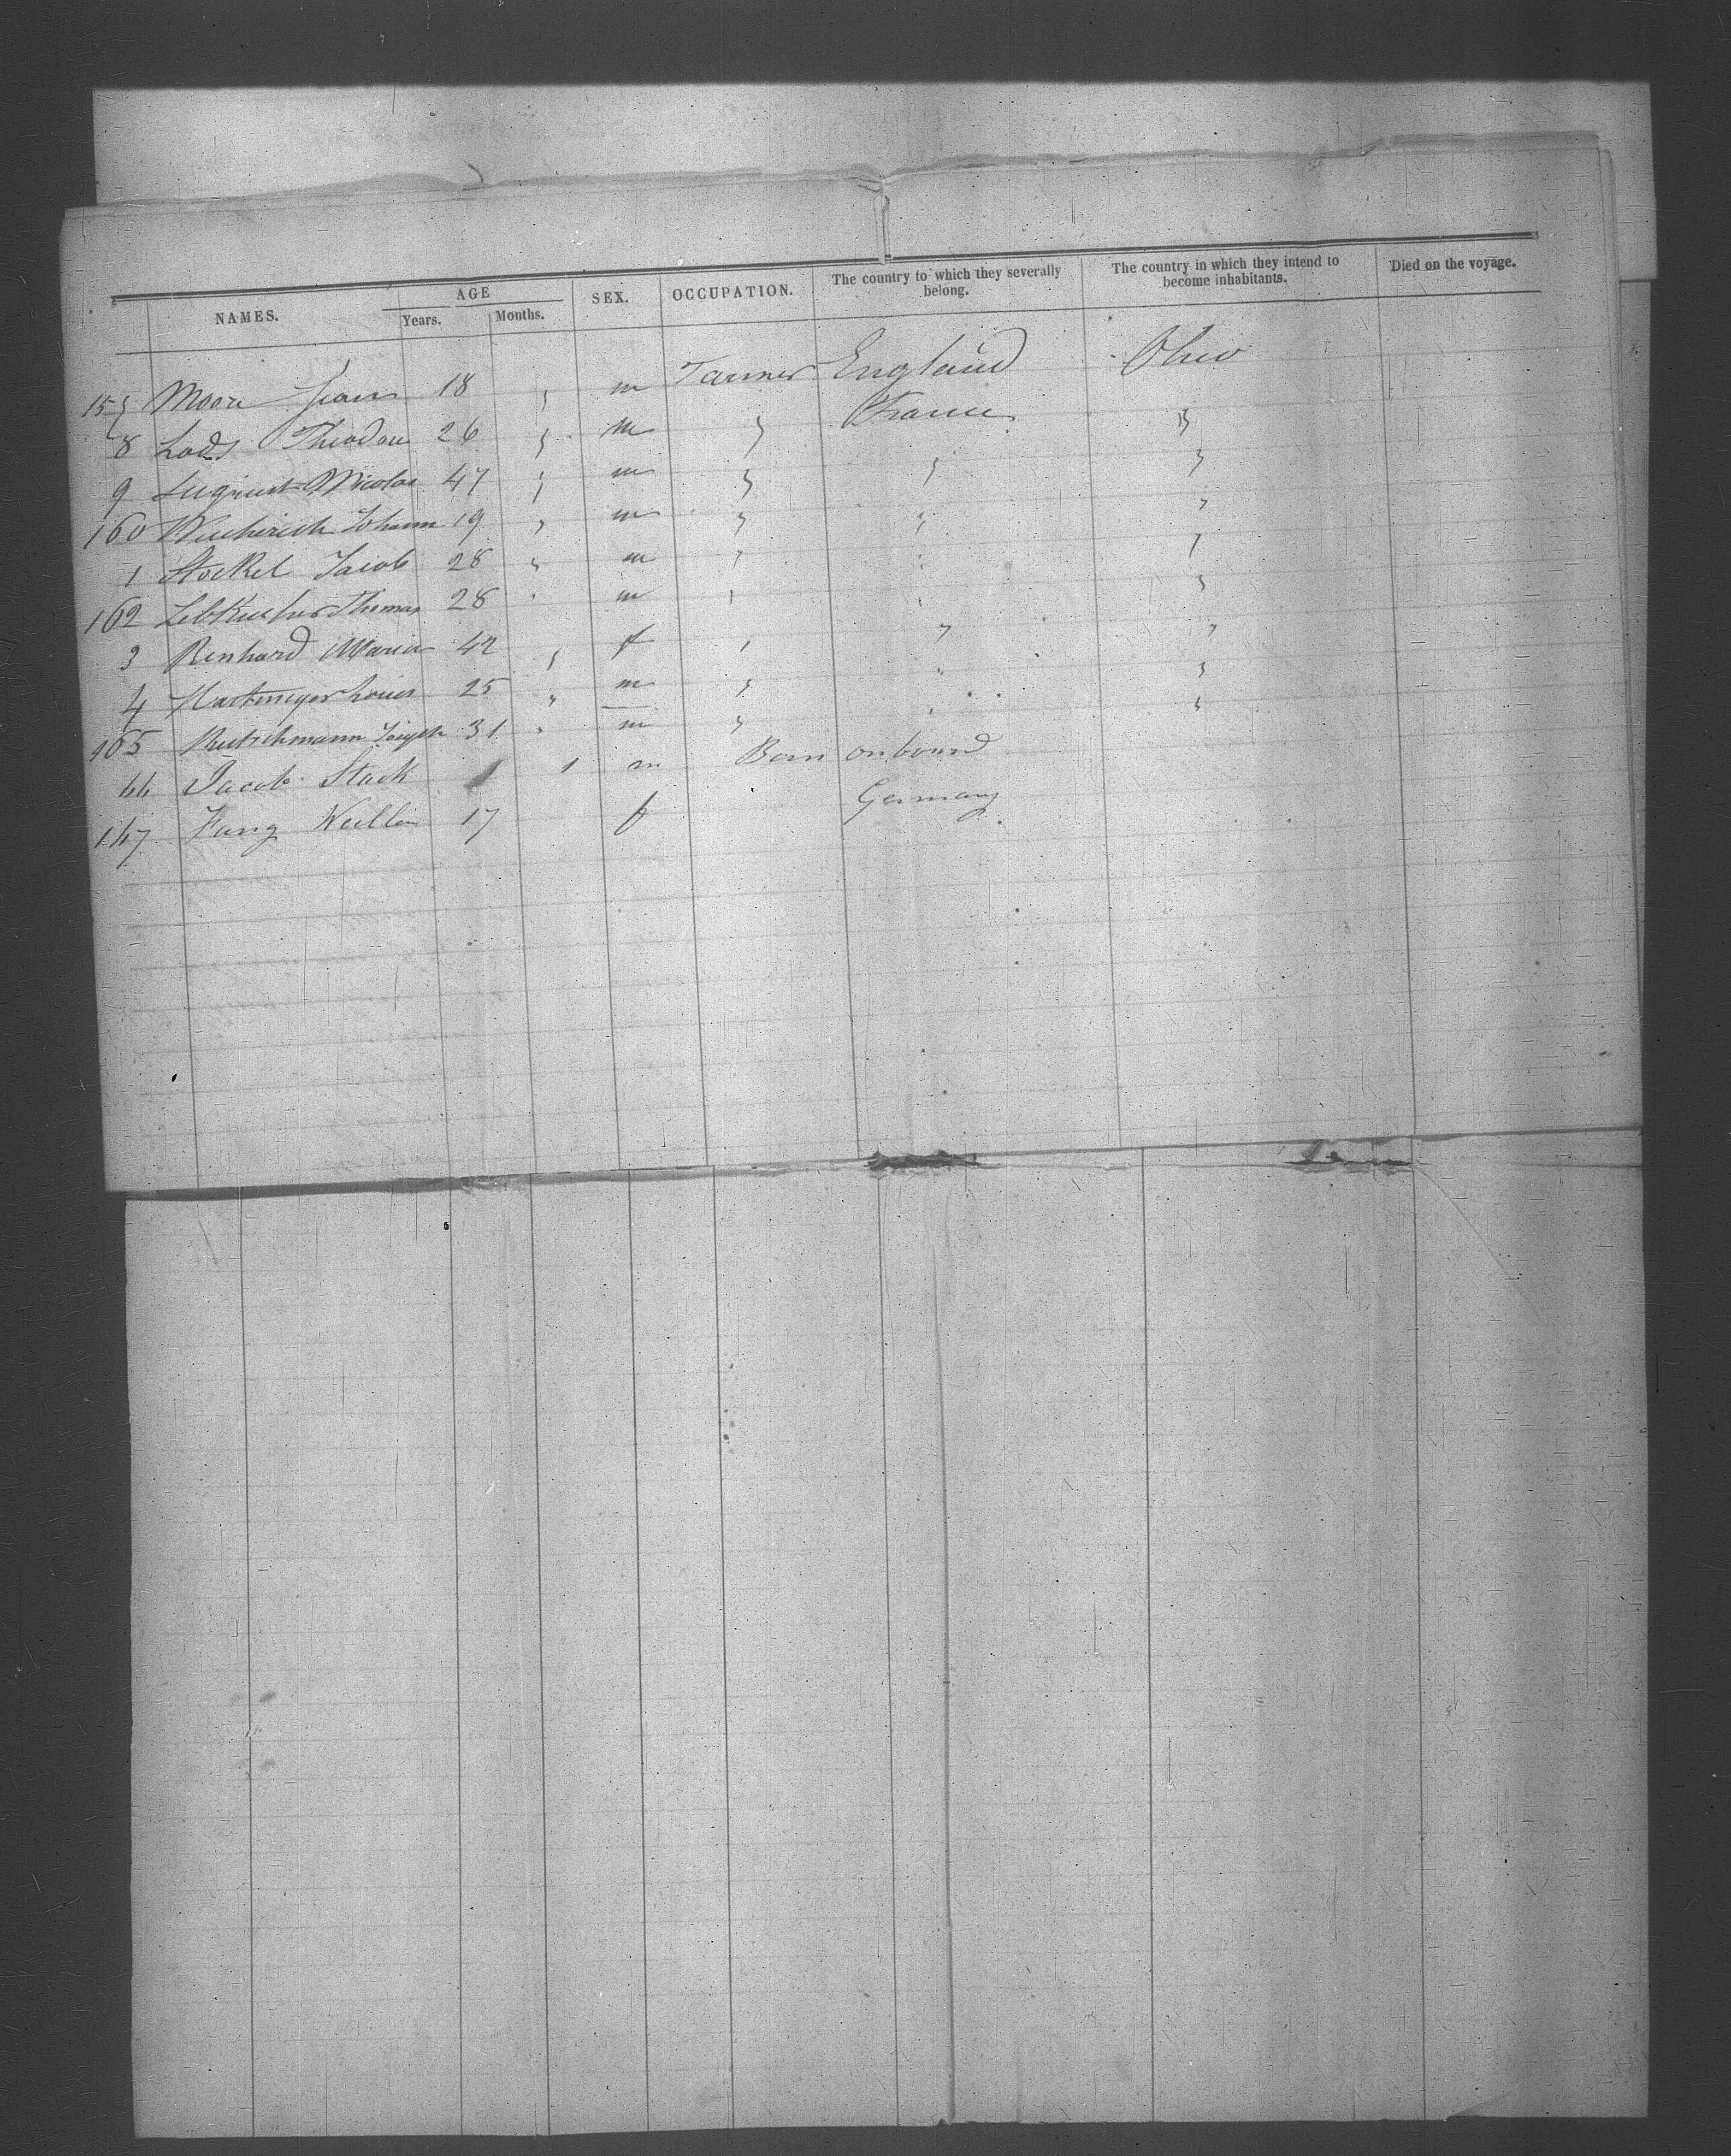 NAMES. AGE Years. Months. SEX. OCCUPATION. The country to which they severally belong. The country in which they intend to become inhabitants. Died on the voyage.
Moore 18 " m England Ohio
8 Lods Theodore 26 " m " France "
9 Nicolas 47 " m " " "
160 Johann 19 " m " " "
1 Stockel Jacob 28 " m " " "
162 Thomas 28 " m " " "
3 Renhard Maria 42 " f " " "
4 Hartmeyer Louis 25 " m " " "
165 Rutschmann Joseph 31 " m " " "
66 Jacob Stack 1 m Born on board
167 17 f Germany